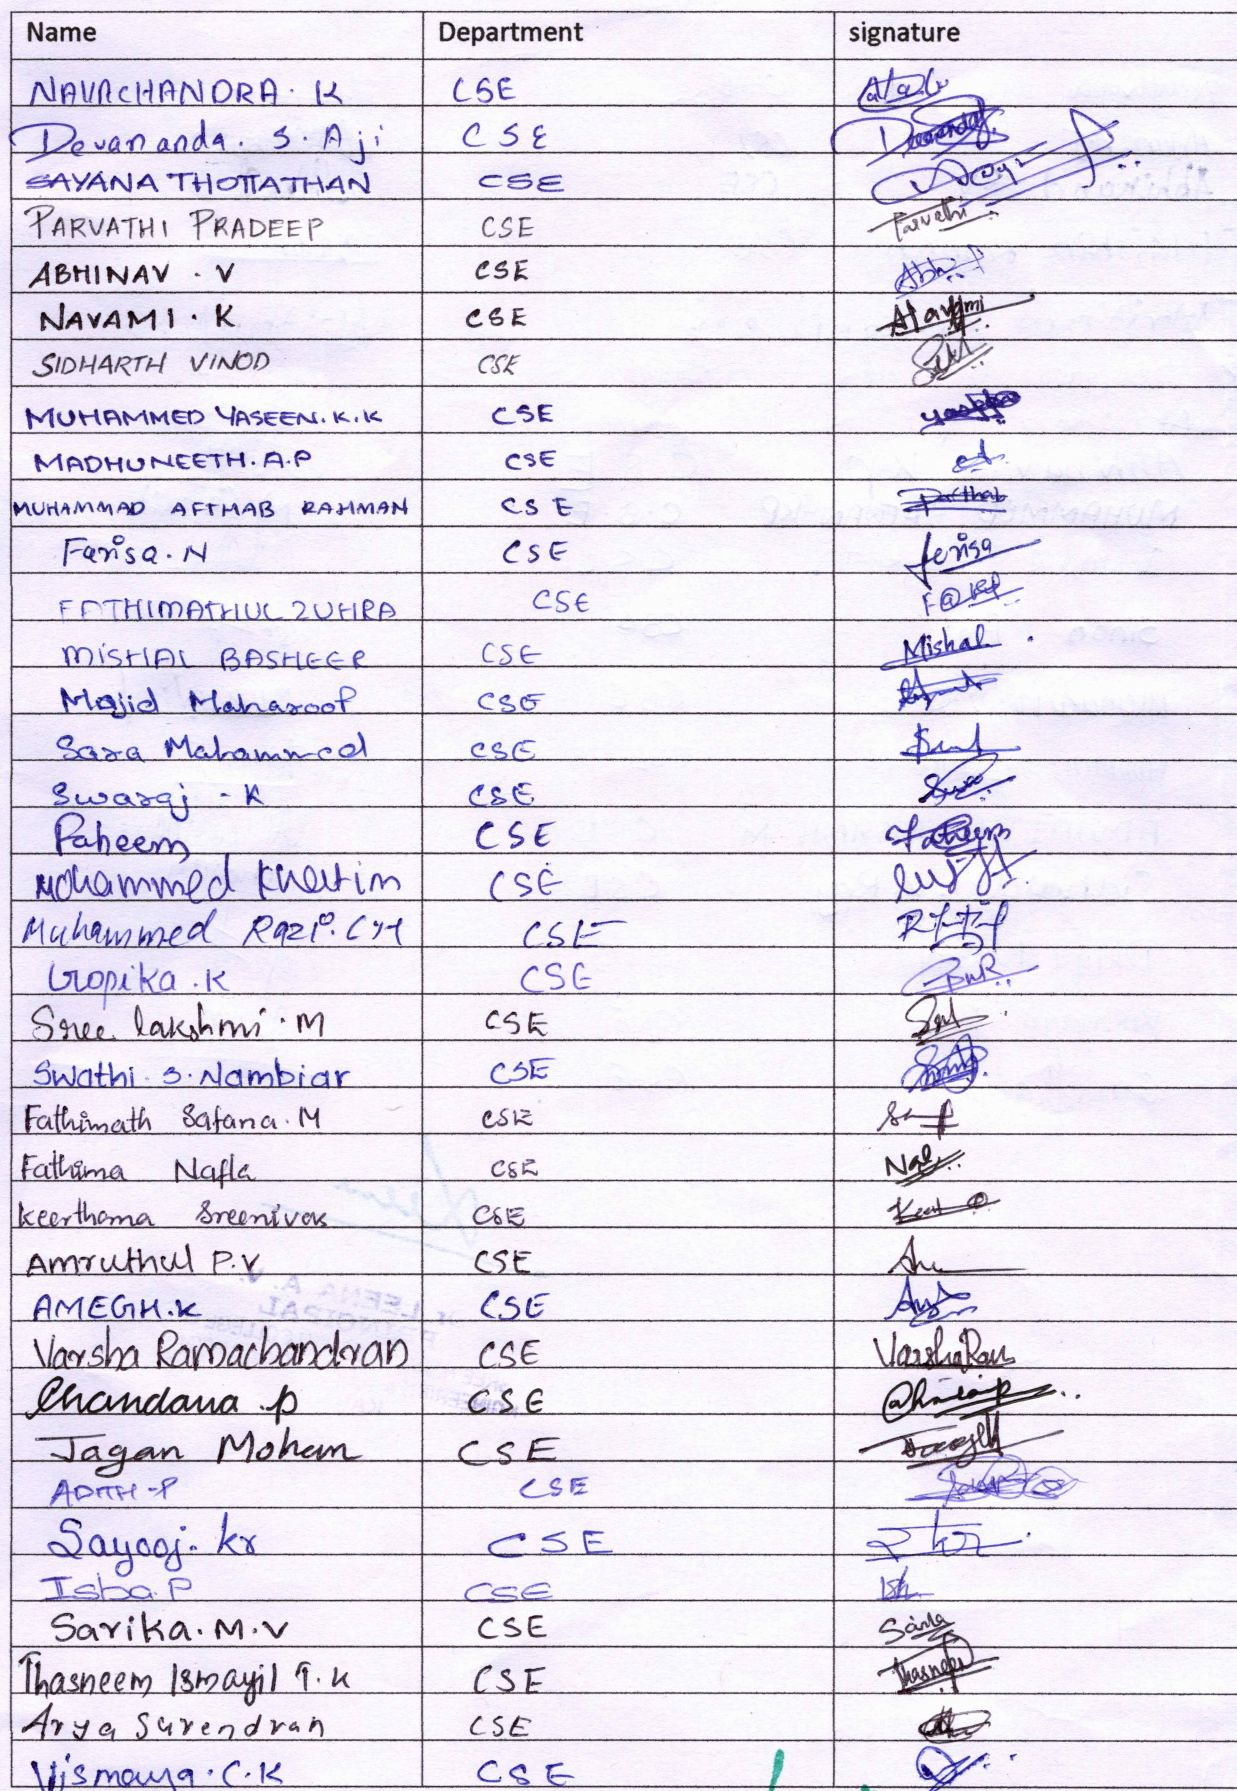 Name Department signature
NAVACHANDRA. K CSE
Devananda. S. Aji CSE
SAYANA THOTTATHAN CSE
PARVATHI PRADEEP CSE Parvathi
ABHINAV . V CSE
NAVAMI . K CSE Navami
SIDHARTH VINOD CSE
MUHAMMED YASEEN. K. K CSE
MADHUNEETH. A. P CSE
MUHAMMAD AFTHAB RAHMAN CSE
Farisa. N CSE ferisa
FATHIMATHUL ZUHRA CSE
MISHAL BASHEER CSE Mishal
Majid Maharoof CSE
Sara Mahammed CSE
Swaraj - K CSE
Faheem CSE Faheem
Mohammed CSE
Muhammed Razi. CSE
Gopika . K CSE
Sree lakshmi . M CSE
Swathi . S. Nambiar CSE
Fathimath Safana. M CSE
Fathima Nafla CSE
Keerthana Sreenivas CSE
Amruthul P. V CSE
AMEGH. K CSE
Varsha Ramachandran CSE VarshaRam
Chandana . p CSE
Jagan Mohan CSE
ADITH - P CSE
Sayooj. kr CSE
Isba. P CSE
Sarika. M. V CSE
Thasneem Ismayil T. K CSE
Arya Surendran CSE
Vismaya. C. K CSE